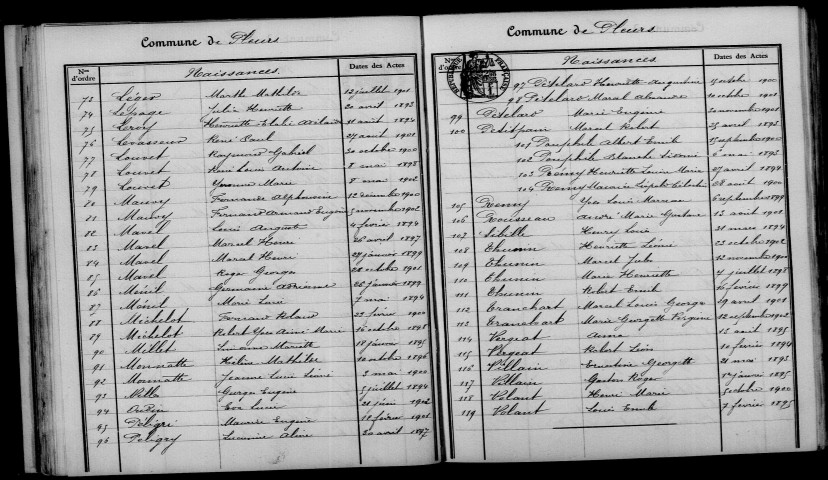 Commune de Pleurs
Nos d'ordre Naissances. Dates des Actes
73 Léger Marthe Mathilde 12 juillet 1901
74 Lepage Julia Henriette 20 avril 1893
75 Leroy Henriette août 1894
76 Levasseur René Paul 27 août 1901
77 Louvet Raymond Gabriel 30 octobre 1900
78 Louvet René Louis Antoine 8 mai 1898
79 Louvet Yvonne Marie 8 mai 1902
80 Mauvy Fernande Alphonsine 12 décembre 1900
81 Mauvy Fernand Armand Eugène novembre 1902
82 Mavel Louis August 4 février 1894
83 Mavel Marcel Henri 26 avril 1897
84 Mavel Marcel Henri 27 janvier 1899
85 Mavel Roger Georges 28 octobre 1901
86 Ménil Germaine Adrienne janvier 1899
87 Ménil Marie Lucie 7 mai 1894
88 Michelot Fernand 22 février 1900
89 Michelot Robert Yves Aimé Marie 16 octobre 1898
90 Millet Mariette 18 janvier 1895
91 Monnatte Hélène Mathilde 10 octobre 1896
92 Monnatte Jeanne Lucie 3 mai 1900
93 Georges Eugène 5 juillet 1894
94 Eva Lucie 21 juin 1902
95 Maurice Eugène 18 février 1901
96 Lucienne Aline 20 avril 1897
Commune de Pleurs
RÉPUBLIQUE FRANÇAISE
Nos d'ordre Naissances. Dates des Actes
97 Petelard Henriette Augustine octobre 1900
98 Petelard Marcel octobre 1901
99 Petelard Marie Eugénie novembre 1901
100 Petitpain Marcel Robert 25 avril 1893
101 Albert Emile septembre 1900
102 Blanche mai 1893
103 Remy Henriette Louise Marie 27 avril 1894
104 Remy 28 août 1900
105 Remy Yves Louis septembre 1899
106 Rousseau André Marie 12 août 1901
107 Sibille Henry Louis 31 mars 1894
108 Thumin Henriette 23 octobre 1902
109 Thumin Marcel Jules 12 novembre 1900
110 Thumin Marie Henriette 4 juillet 1898
111 Thumin Robert Emile 16 février 1899
112 Tranchart Marcel Louis George 29 avril 1901
113 Tranchart Marie Georgette 12 septembre 1902
114 Vergeat 13 août 1895
115 Vergeat Robert Léon 10 février 1894
116 Villain Ernestine Georgette 21 mai 1893
117 Villain Gaston Roger janvier 1895
118 Volant Henri Marie 5 octobre 1900
119 Volant Louis Emile 7 février 1895